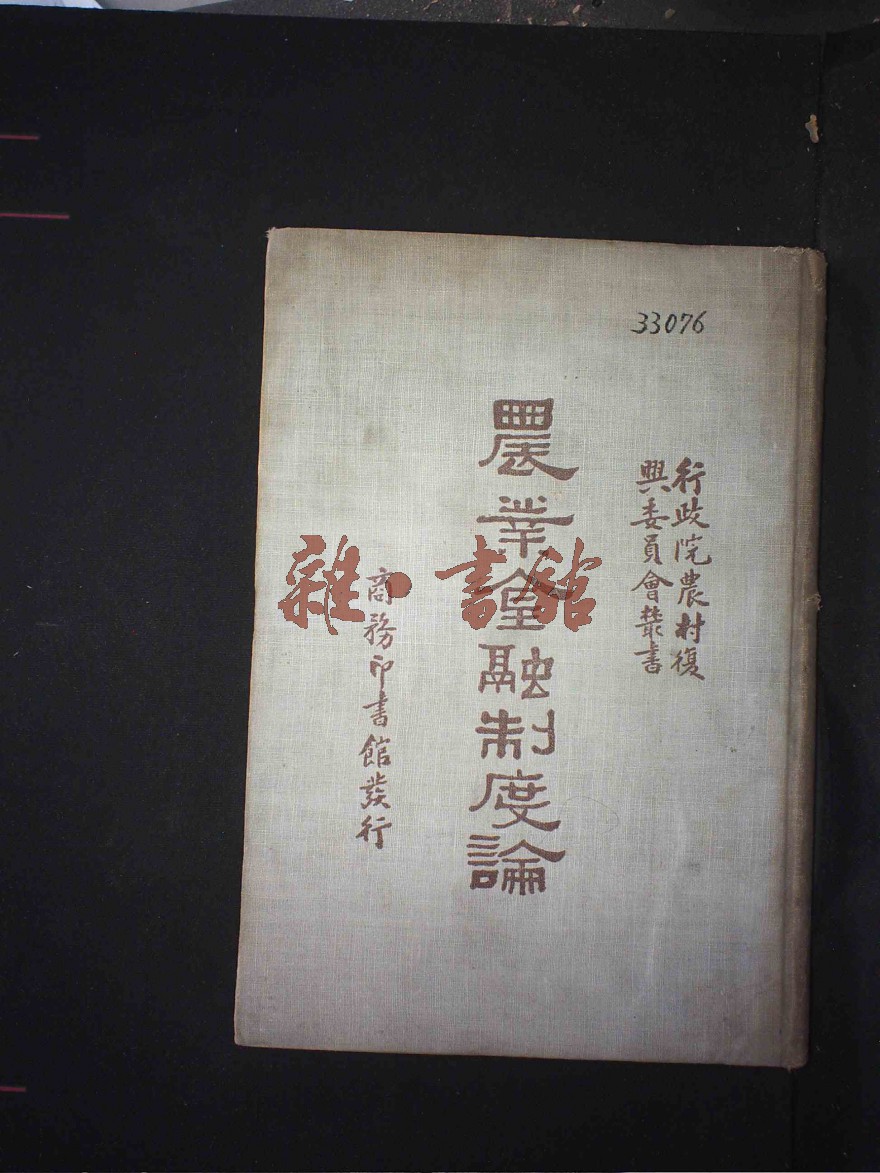 33076
行政院農村復
興委員會叢書
農業金融制度論
商務印書館發行
雜·書館